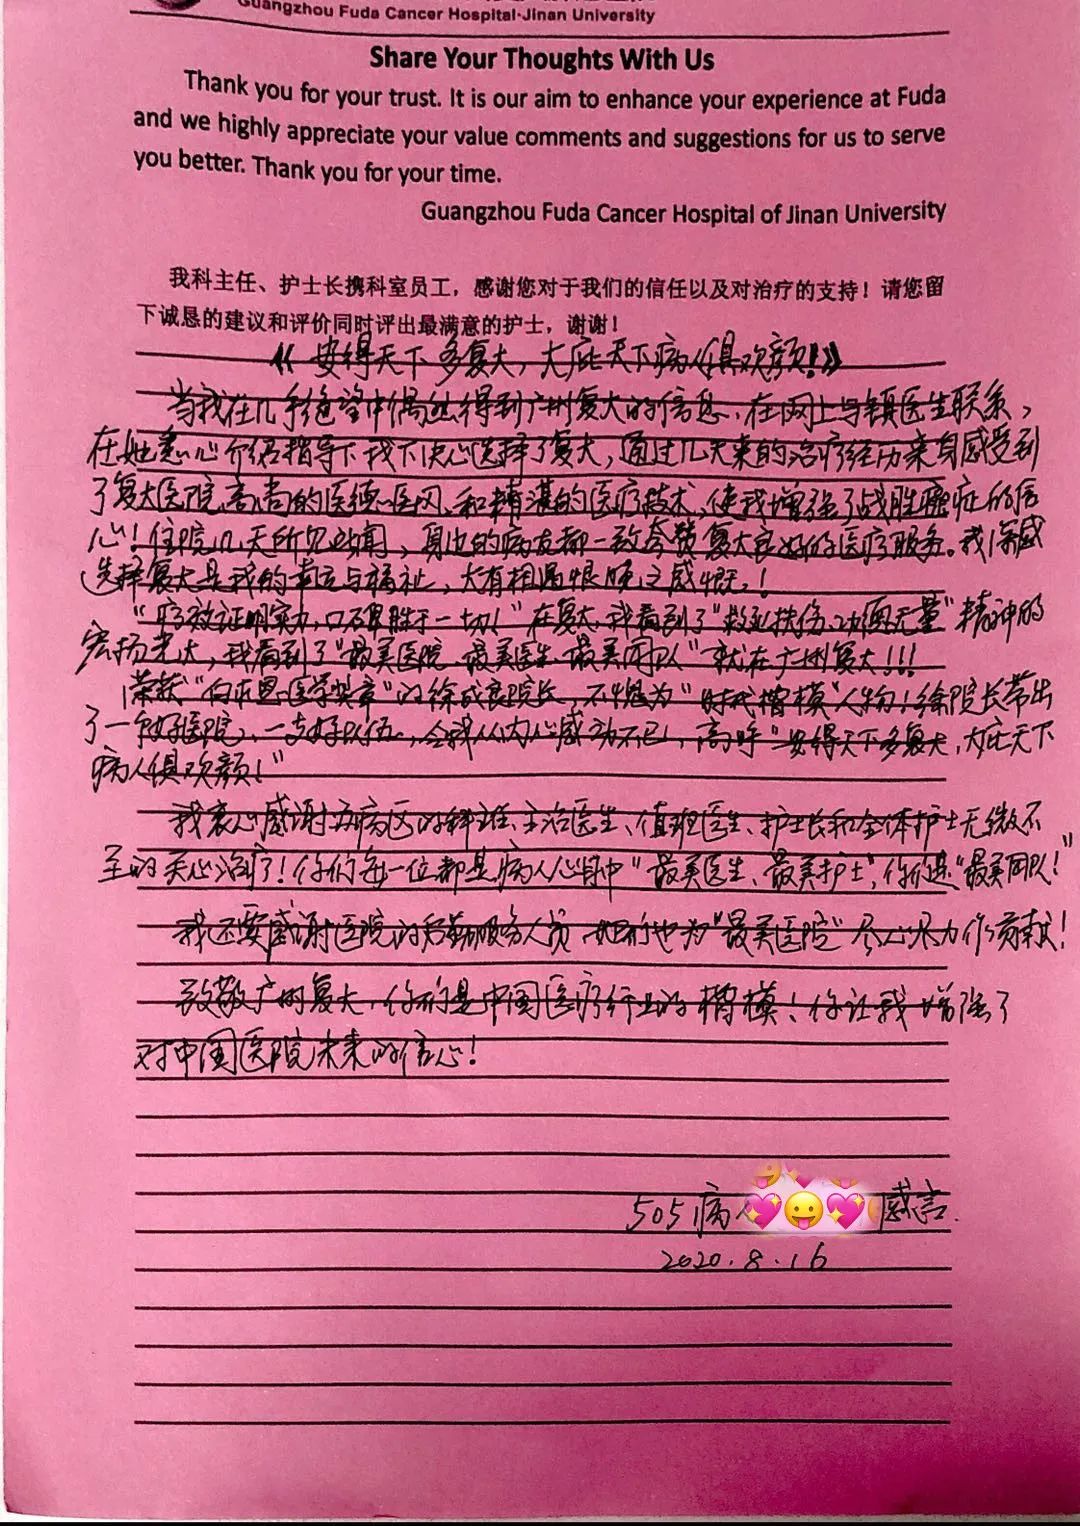 Guangzhou Fuda Cancer Hospital·Jinan University
Share Your Thoughts With Us
Thank you for your trust. It is our aim to enhance your experience at Fuda
and we highly appreciate your value comments and suggestions for us to serve
you better. Thank you for your time.
Guangzhou Fuda Cancer Hospital of Jinan University
我科主任、护士长携科室员工，感谢您对于我们的信任以及对治疗的支持！请您留
下诚恳的建议和评价同时评出最满意的护士，谢谢！
《安得天下多复大，大庇天下病人俱欢颜！》
当我在几乎绝望中偶然得到广州复大的信息，在网上与镇医生联系，
在她悉心介绍指导下我下决心选择了复大，通过几天来的治疗经历亲身感受到
了复大医院高尚的医德医风、和精湛的医疗技术，使我增强了战胜癌症的信
心！住院几天所见所闻，身边的病友都一致夸赞复大良好的医疗服务。我深感
选择复大是我的幸运与福祉，大有相遇恨晚之感慨！
“疗效证明实力，口碑胜于一切！”在复大，我看到了“救死扶伤、功德无量”精神的
宏扬光大，我看到了“最美医院、最美医生、最美团队”就在广州复大！！！
荣获“白求恩医学奖章”的徐成良院长，不愧为“时代楷模”人物！徐院长带出
了一个好医院、一支好队伍，令我从内心感动不已，高呼“安得天下多复大，大庇天下
病人俱欢颜！”
我衷心感谢五病区的科主任、主治医生、值班医生、护士长和全体护士无微不
至的关心治疗！你们每一位都是病人心目中“最美医生、最美护士”，你们是“最美团队！”
我还要感谢医院的后勤服务人员，她们也为“最美医院”尽心尽力作贡献！
致敬广州复大，你们是中国医疗行业的楷模！你让我增强了
对中国医院未来的信心！
505病人 感言.
2020.8.16